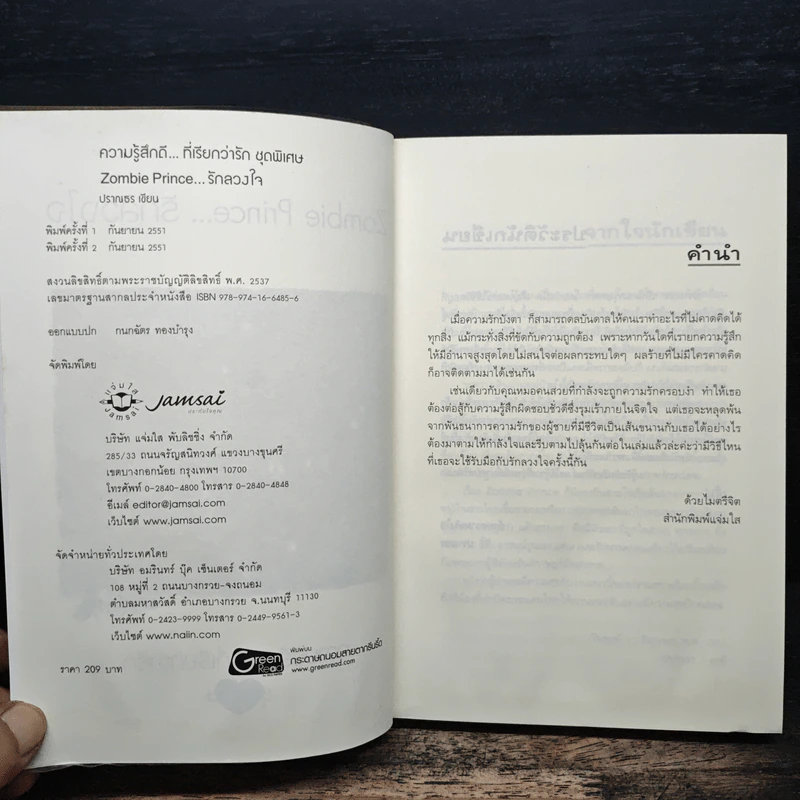 ความรู้สึกดี... ที่เรียกว่ารัก ชุดพิเศษ
Zombie Prince... รักลวงใจ
ปราณธร เขียน
พิมพ์ครั้งที่ 1 กันยายน 2551
พิมพ์ครั้งที่ 2 กันยายน 2551
สงวนลิขสิทธิ์ตามพระราชบัญญัติลิขสิทธิ์ พ.ศ. 2537
เลขมาตรฐานสากลประจำหนังสือ ISBN 978-974-16-6485-6
ออกแบบปก กนกฉัตร ทองบำรุง
จัดพิมพ์โดย
แจ่มใส
Jamsai
Jamsai
บริษัท แจ่มใส พับลิชชิ่ง จำกัด
285/33 ถนนจรัญสนิทวงศ์ แขวงบางขุนศรี
เขตบางกอกน้อย กรุงเทพฯ 10700
โทรศัพท์ 0-2840-4800 โทรสาร 0-2840-4848
อีเมล์ editor@jamsai.com
เว็บไซต์ www.jamsai.com
จัดจำหน่ายทั่วประเทศโดย
บริษัท อมรินทร์ บุ๊ค เซ็นเตอร์ จำกัด
108 หมู่ที่ 2 ถนนบางกรวย-จงถนอม
ตำบลมหาสวัสดิ์ อำเภอบางกรวย จ.นนทบุรี 11130
โทรศัพท์ 0-2423-9999 โทรสาร 0-2449-9561-3
เว็บไซต์ www.naiin.com
ราคา 209 บาท
Green Read
พิมพ์บน
กระดาษถนอมสายตากรีนรี้ด
www.greenread.com
คำนำ
เมื่อความรักบังตา ก็สามารถดลบันดาลให้คนเราทำอะไรที่ไม่คาดคิดได้
ทุกสิ่ง แม้กระทั่งสิ่งที่ขัดกับความถูกต้อง เพราะหากวันใดที่เรายกความรู้สึก
ให้มีอำนาจสูงสุดโดยไม่สนใจต่อผลกระทบใดๆ ผลร้ายที่ไม่มีใครคาดคิด
ก็อาจติดตามมาได้เช่นกัน
เช่นเดียวกับคุณหมอคนสวยที่กำลังจะถูกความรักครอบงำ ทำให้เธอ
ต้องต่อสู้กับความรู้สึกผิดชอบชั่วดีซึ่งรุมเร้าภายในจิตใจ แต่เธอจะหลุดพ้น
จากพันธนาการความรักของผู้ชายที่มีชีวิตเป็นเส้นขนานกับเธอได้อย่างไร
ต้องมาตามให้กำลังใจและรีบตามไปลุ้นกันต่อในเล่มแล้วล่ะค่ะว่ามีวิธีไหน
ที่เธอจะใช้รับมือกับรักลวงใจครั้งนี้กัน
ด้วยไมตรีจิต
สำนักพิมพ์แจ่มใส